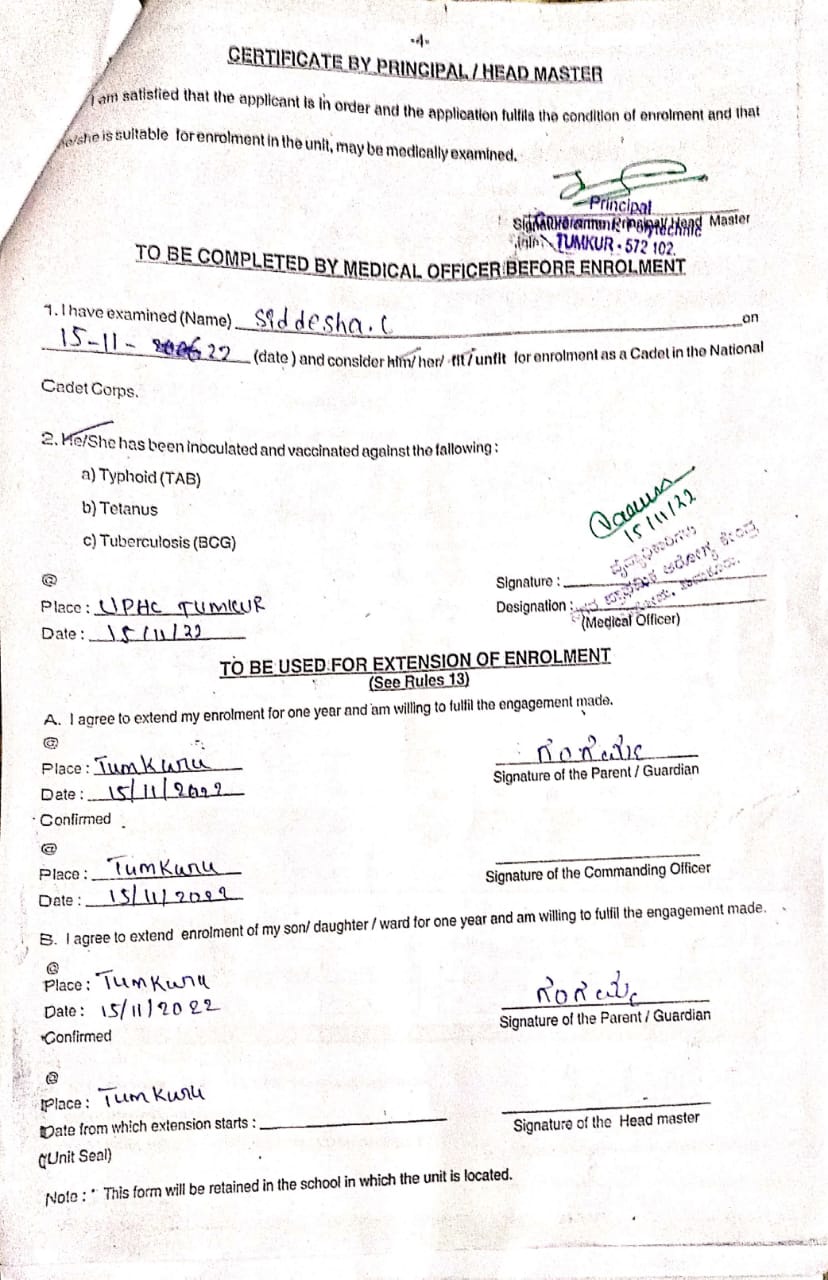 -4-
CERTIFICATE BY PRINCIPAL / HEAD MASTER
I am satisfied that the applicant is in order and the application fulfils the condition of enrolment and that
he/she is suitable for enrolment in the unit, may be medically examined.
Principal
Signature of Principal/ Head Master
Polytechnic
TUMKUR - 572 102.
TO BE COMPLETED BY MEDICAL OFFICER BEFORE ENROLMENT
1. I have examined (Name) Siddesha.C on
15-11- 22 (date ) and consider him/ her/ fit / unfit for enrolment as a Cadet in the National
Cadet Corps.
2. He/She has been inoculated and vaccinated against the fallowing :
a) Typhoid (TAB)
b) Tetanus
c) Tuberculosis (BCG)
15/11/22
@
Signature :
Place : UPHC TUMKUR
Designation :
ಆರೋಗ್ಯ ಕೇಂದ್ರ
(Medical Officer)
Date : 15/11/22
TO BE USED FOR EXTENSION OF ENROLMENT
(See Rules 13)
A. I agree to extend my enrolment for one year and am willing to fulfil the engagement made.
@
Place : Tumkuru
Signature of the Parent / Guardian
Date : 15/11/2022
Confirmed
@
Place : Tumkuru
Signature of the Commanding Officer
Date : 15/11/2022
B. I agree to extend enrolment of my son/ daughter / ward for one year and am willing to fulfil the engagement made.
@
Place : Tumkuru
Date : 15/11/2022
Signature of the Parent / Guardian
Confirmed
@
Place : Tumkuru
Date from which extension starts :
Signature of the Head master
(Unit Seal)
Note : * This form will be retained in the school in which the unit is located.